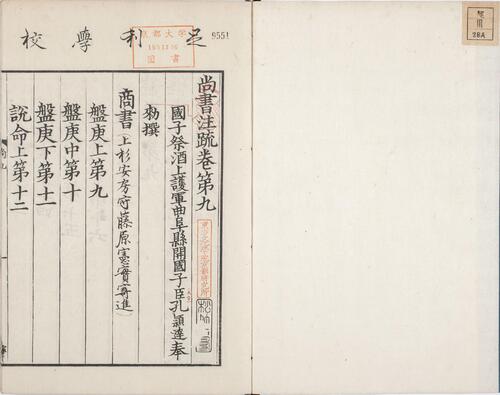 足利學校
京都大學
圖書
9551
尚書注疏卷第九
國子祭酒上護軍曲阜縣開國子臣孔穎達奉
勑撰
商書(上杉安房守藤原憲實寄進)
盤庚上第九
盤庚中第十
盤庚下第十一
說命上第十二
28A